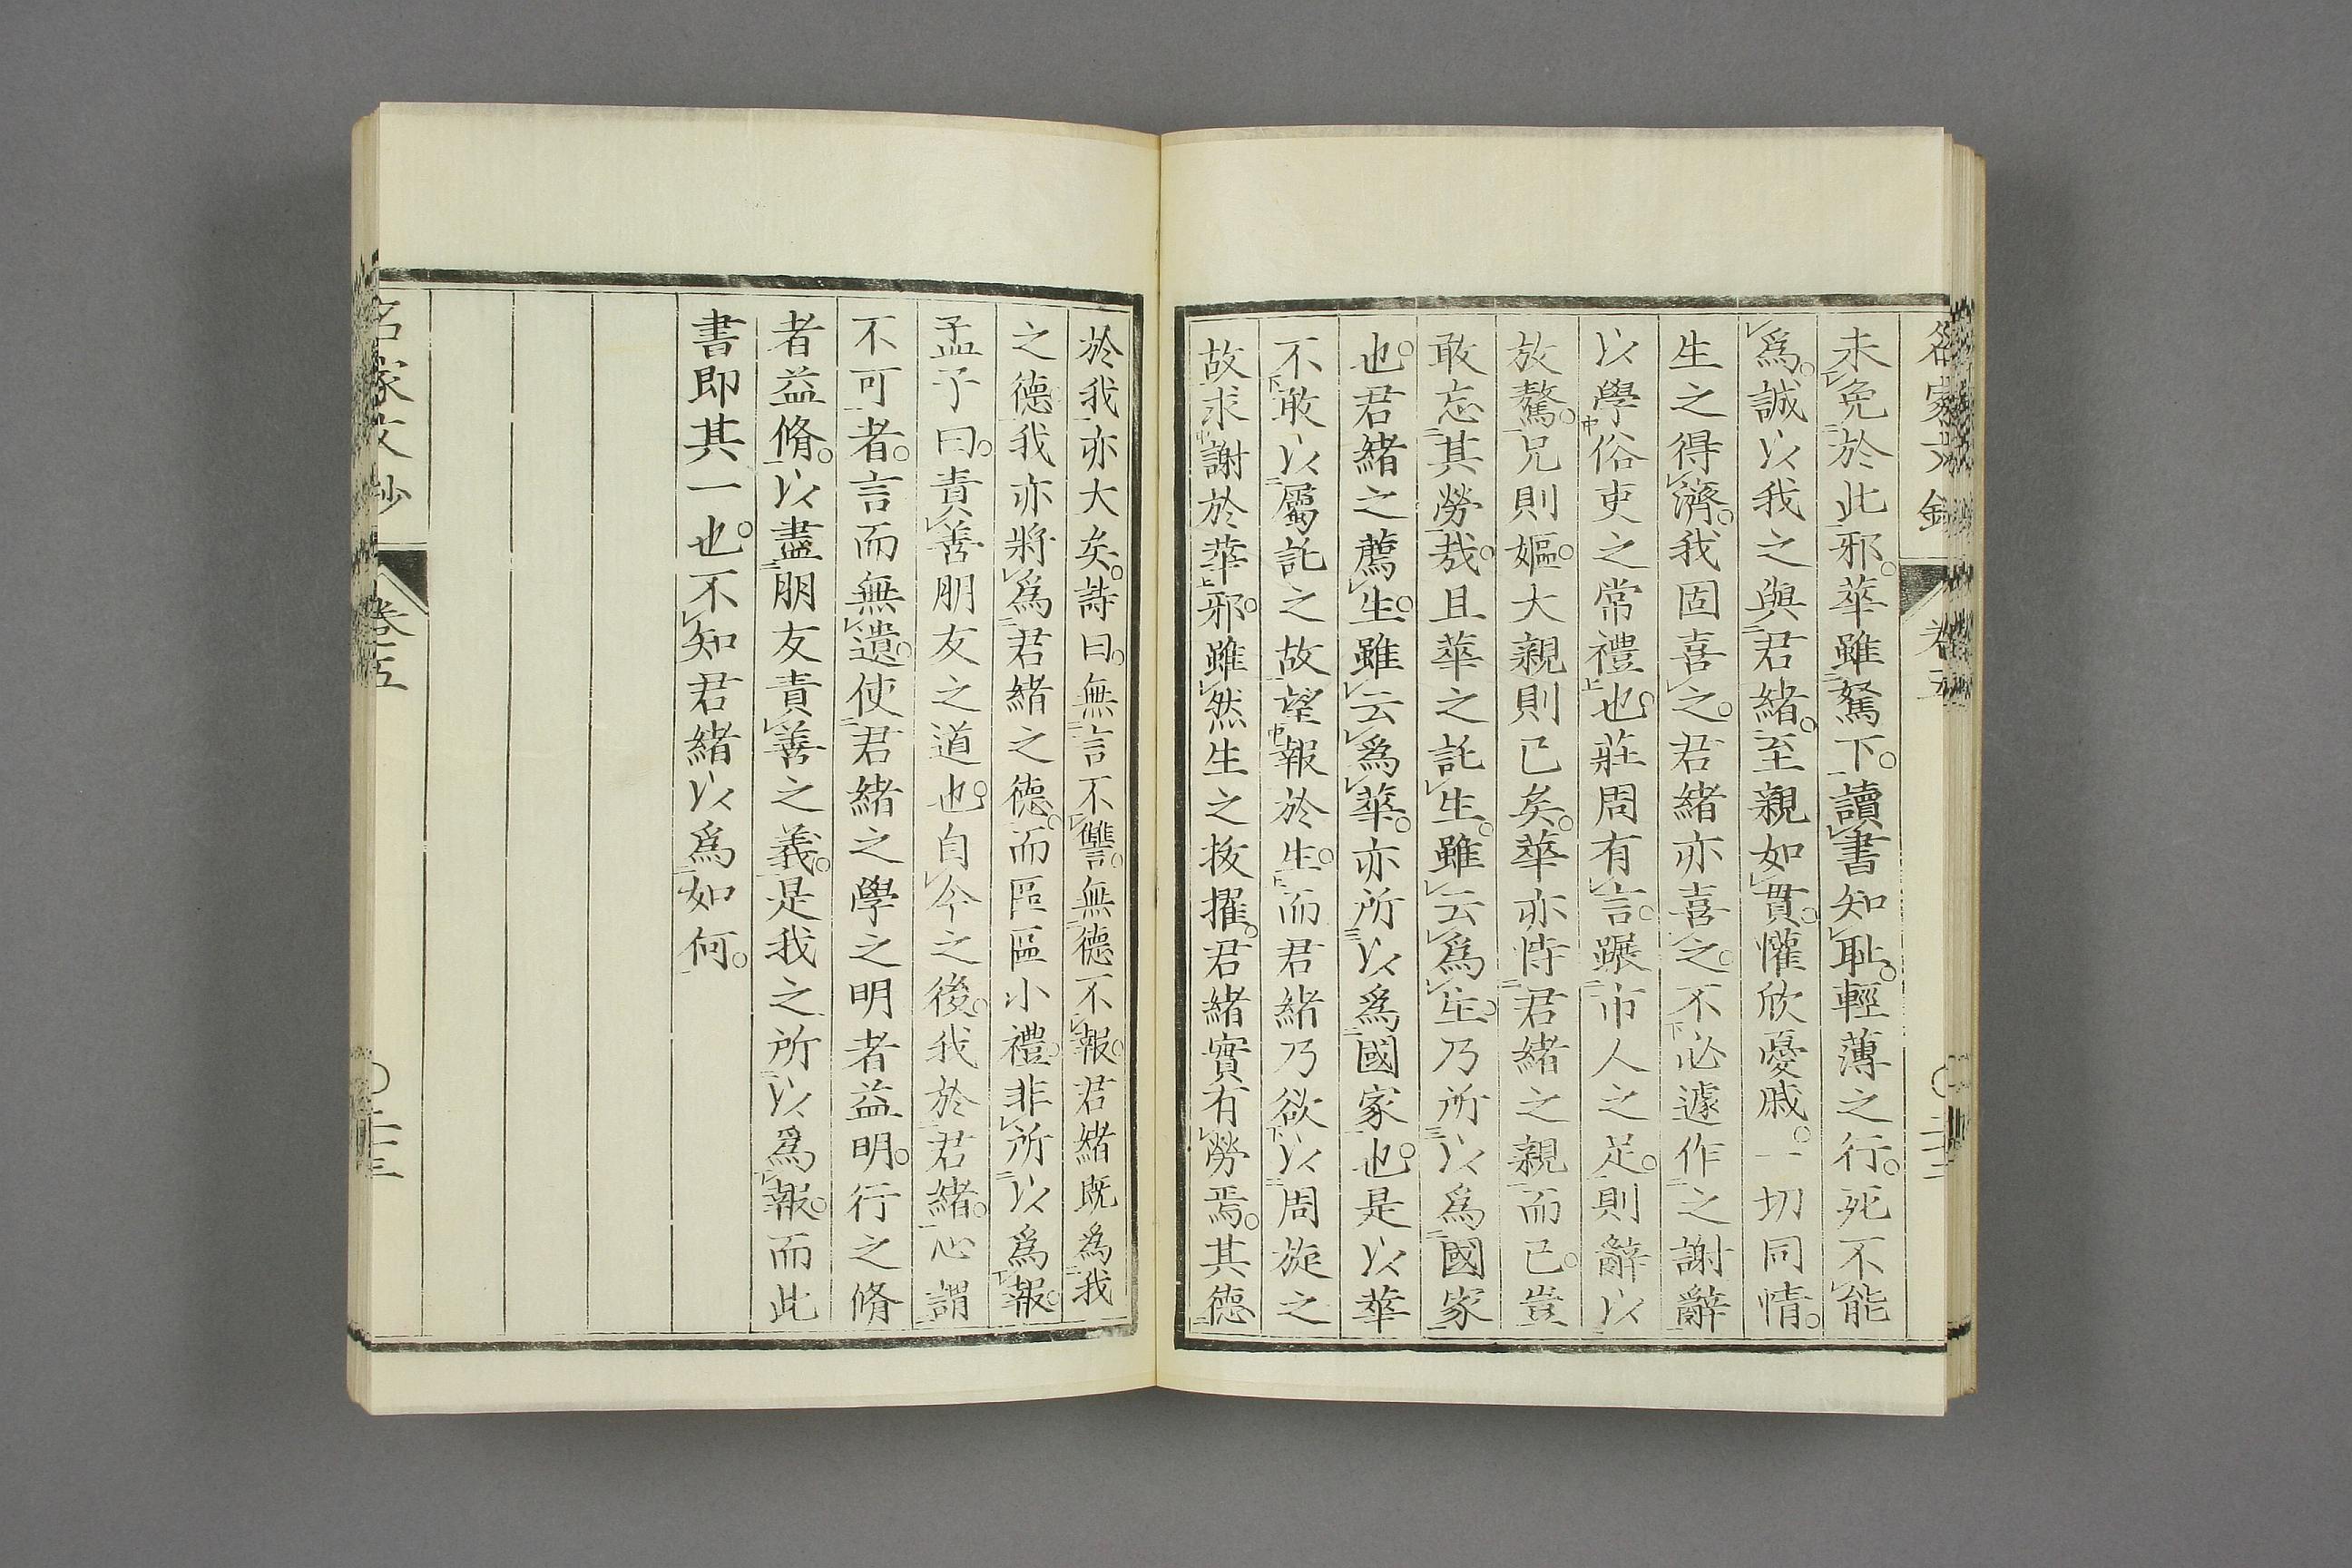 名家文鈔 卷五 二十二
未免於此邪。華雖駑下。讀書知恥。輕薄之行。死不能
爲。誠以我之與君緒。至親如貫。懽欣憂戚。一切同情。
生之得濟。我固喜之。君緒亦喜之。不必遽作之謝辭
以學俗吏之常禮也。莊周有言。蹍市人之足。則辭以
放驁。兄則嫗。大親則已矣。華亦恃君緒之親而已。豈
敢忘其勞哉。且華之託生。雖云爲生。乃所以爲國家
也。君緒之薦生。雖云爲華。亦所以爲國家也。是以華
不敢以屬託之故望報於生。而君緒乃欲以周旋之
故求謝於華邪。雖然生之拔擢。君緒實有勞焉。其德
於我亦大矣。詩曰。無言不讐。無德不報。君緒既爲我
之德。我亦將爲君緒之德。而區區小禮。非所以爲報。
孟子曰。責善朋友之道也。自今之後。我於君緒。心謂
不可者。言而無遺。使君緒之學之明者益明。行之脩
者益脩。以盡朋友責善之義。是我之所以爲報。而此
書即其一也。不知君緒以爲如何。
名家文鈔 卷五 二十三